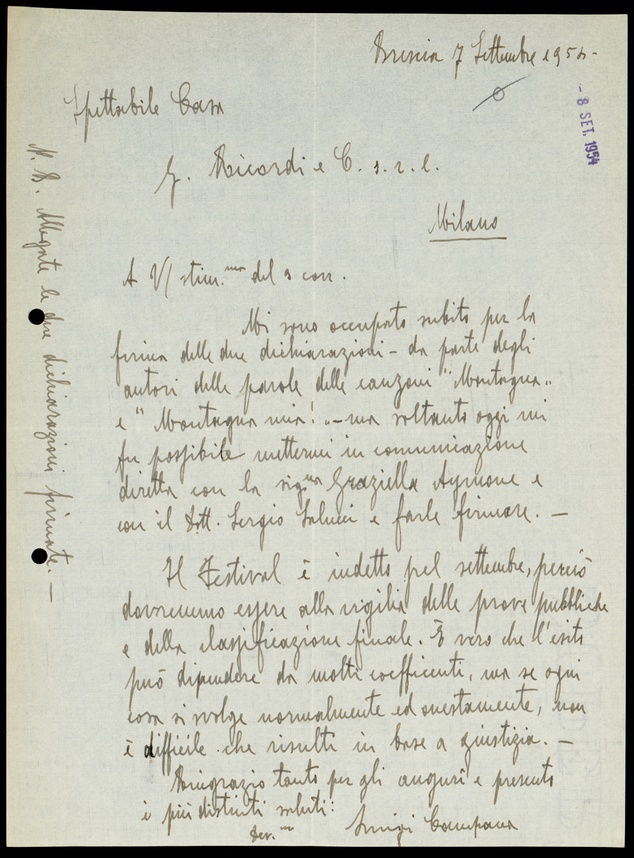 Brescia 7 Settembre 1954-
- 8 SET. 1954
Spettabile Casa
G. Ricordi e C. s. r. l.
Milano
A V/ stim.ma del 3 corr.
Mi sono occupato subito per la
firma delle due dichiarazioni - da parte degli
autori delle parole delle canzoni "Montagna"
e "Montagna mia!" - ma soltanto oggi mi
fu possibile mettermi in comunicazione
diretta con la sig.na Graziella Aymone e
con il Dott. Sergio e farle firmare. -
Il Festival è indetto pel settembre, perciò
dovremmo essere alla vigilia delle prove pubbliche
e della classificazione finale. È vero che l'esito
può dipendere da molti coefficenti, ma se ogni
cosa si svolge normalmente ed onestamente, non
è difficile che risulti in base a giustizia. -
Ringrazio tanto per gli auguri e presento
i più distinti saluti:
Dev.mo Luigi Campana
N. B. Allegate le due dichiarazioni firmate. -